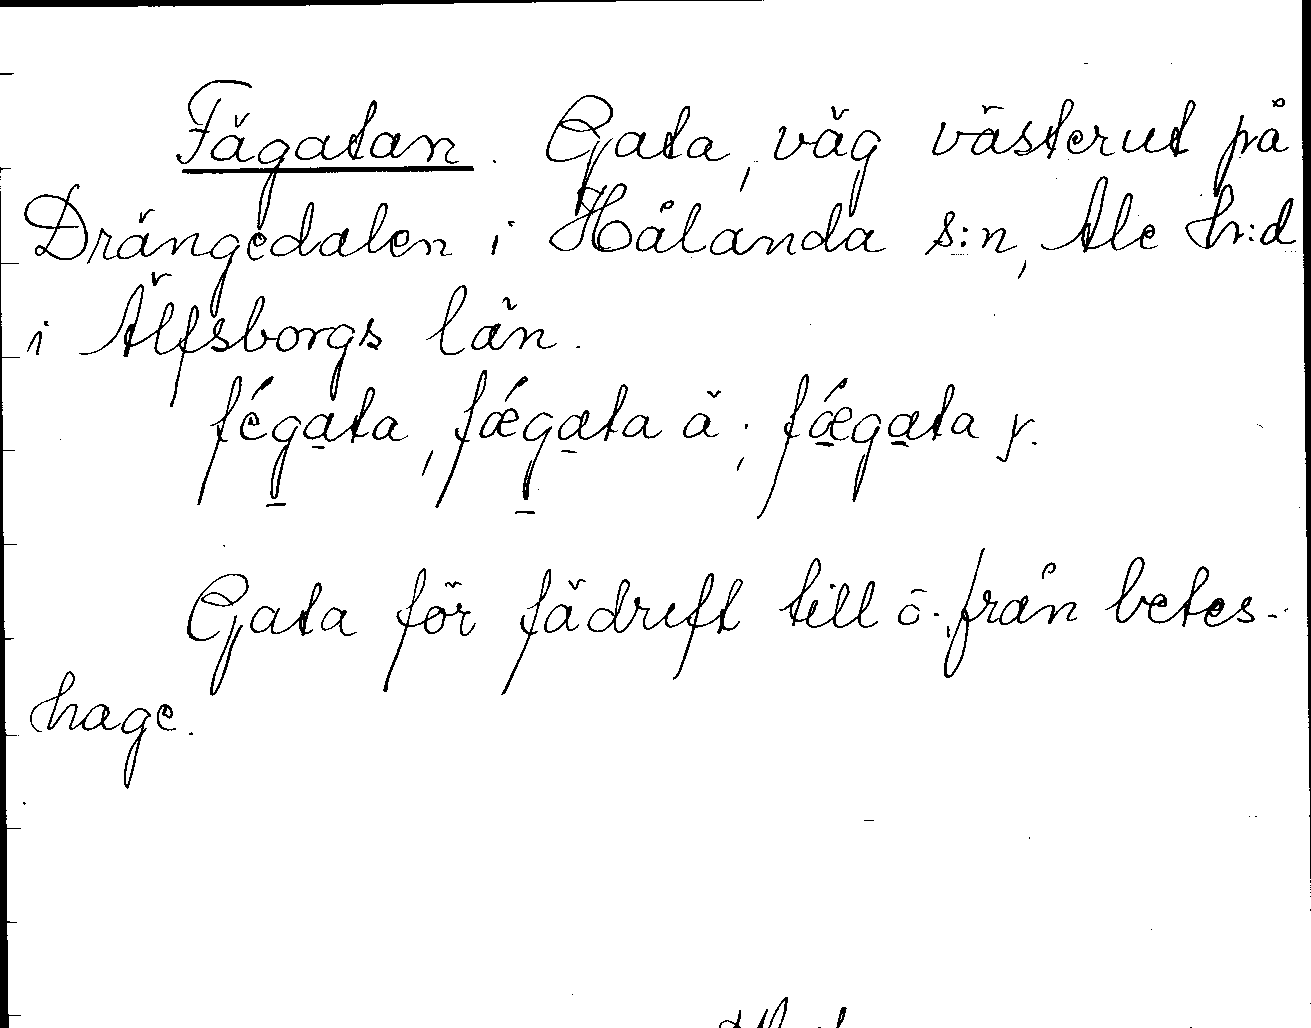 Fägatan. Gata, väg västerut på
Drängedalen i Hålanda s:n, Ale hr:d
i Älfsborgs län.
fégata, fǽgata ä; fǽgata y.
Gata för fädrift till o. från betes-
hage.